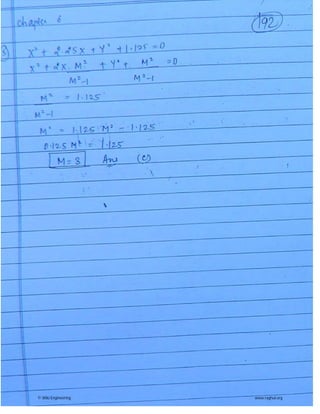 Chapter 6
192
3) X² + 2.25X + Y² + 1.125 = 0
X² + 2X. M²/M²-1 + Y² + M²/M²-1 = 0
M²/M²-1 = 1.125
M² = 1.125 M² - 1.125
0.125 M² = 1.125
M = 3 Ans (C)
© Wiki Engineering
www.raghul.org